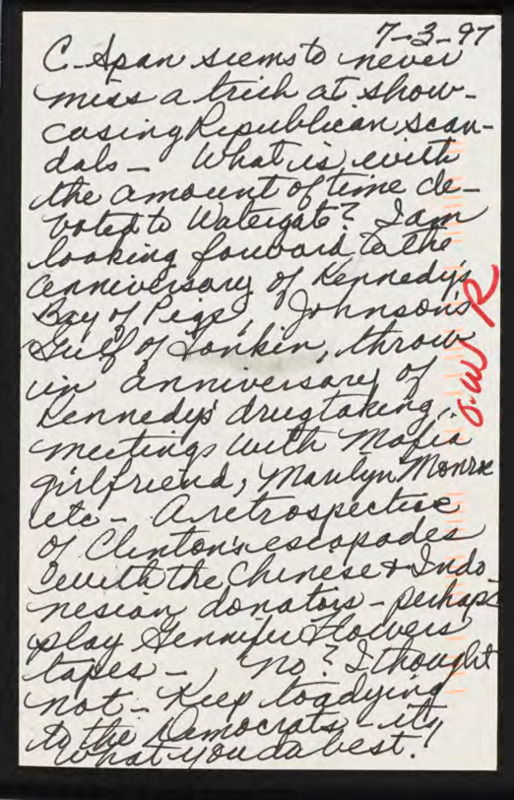 7-3-97
C-Span seems to never
miss a trick at show-
casing Republican scan-
dals - What is with
the amount of time de-
voted to Watergate? I am
looking forward to the
anniversary of Kennedy's
Bay of Pigs, Johnson's
Gulf of Tonkin, throw
in anniversary of
Kennedy's drugtaking,
meetings with Mafia
girlfriend, Marilyn Monroe
etc - A retrospective
of Clinton's escapades
with the Chinese & Indo-
nesian donators - perhaps
play Gennifer Flowers
tapes - No? I thought
not - Keep toadying
to the Democrats - it's
what you do best!
R